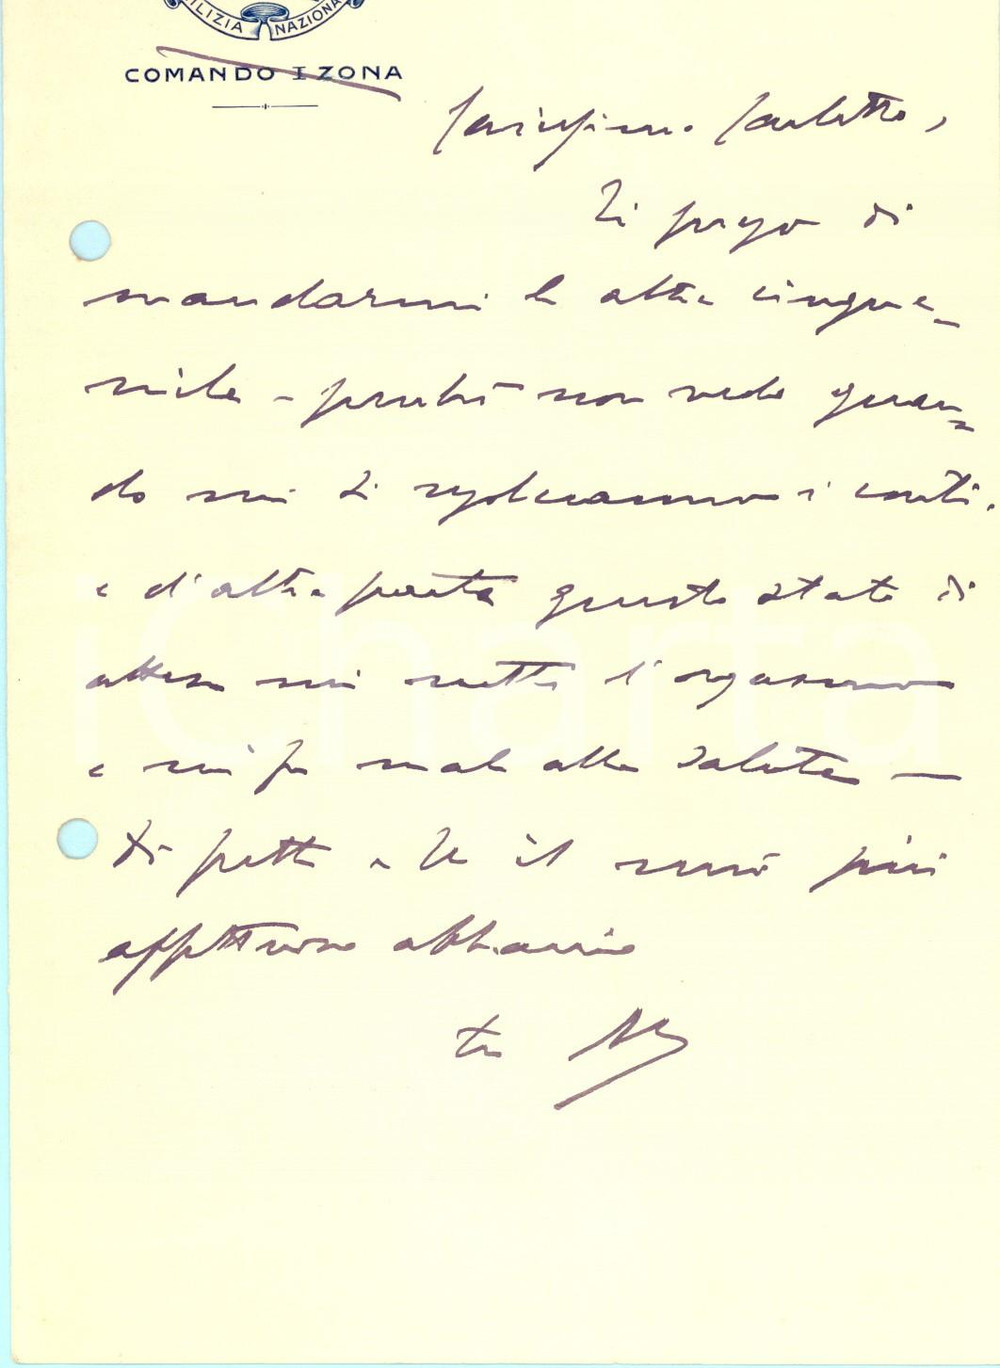 MILIZIA NAZIONA
COMANDO I ZONA
Carissimo Carletto,
Ti prego di
mandarmi le altre cinque-
mila - perché non vedo quan=
do mi si regoleranno i conti.
e d'altra parte questo stato di
attesa mi mette l'orgasmo
e mi fa male alla salute —
Ti prego il mio più
affettuoso abbraccio
tuo
iCharta